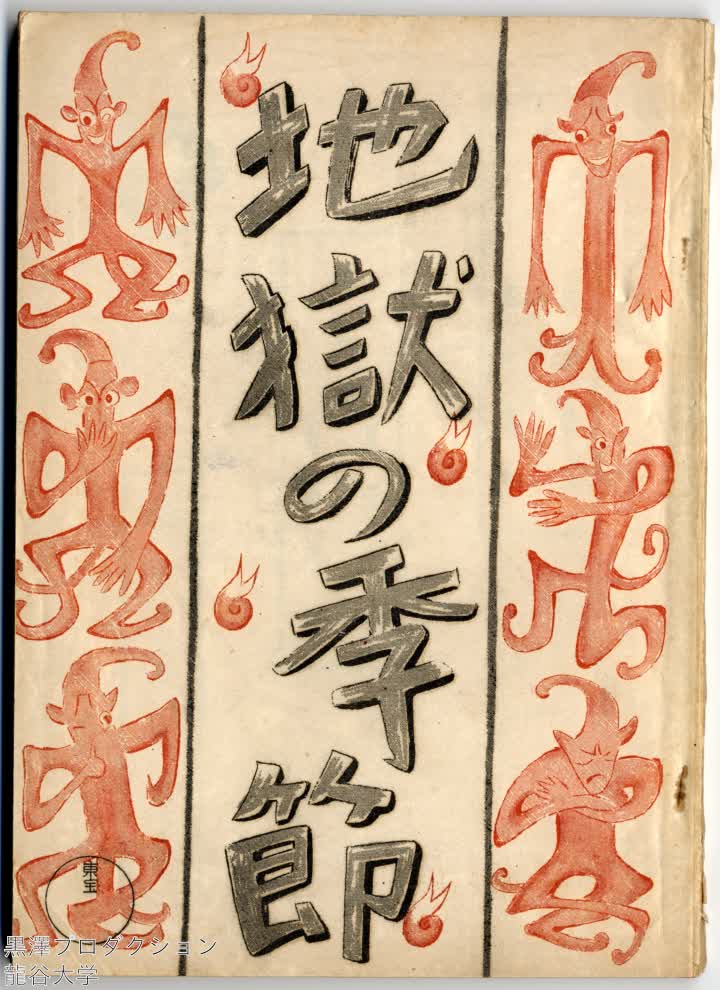 地獄の季節
東宝
黒澤プロダクション
龍谷大学